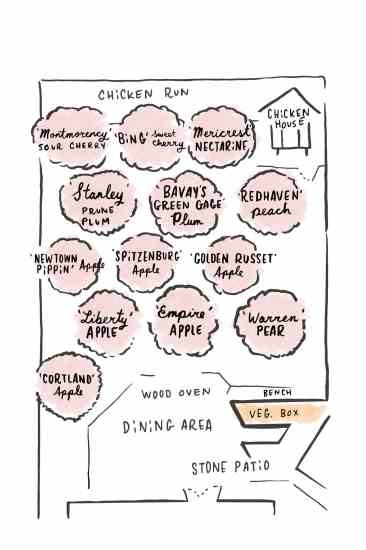 CHICKEN RUN
CHICKEN
HOUSE
'Montmorency'
SOUR CHERRY
'BING' Sweet
Cherry
Mericrest
NECTARINE
Stanley
PRUNE
PLUM
BAVAY'S
GREEN GAGE
Plum
'REDHAVEN'
peach
'NEWTOWN
PIPPIN' Apple
'SPITZENBURG'
Apple
'GOLDEN RUSSET'
Apple
'Liberty'
APPLE
'Empire'
APPLE
'Warren'
PEAR
'CORTLAND'
Apple
WOOD OVEN
BENCH
VEG. BOX
DINING AREA
STONE PATIO